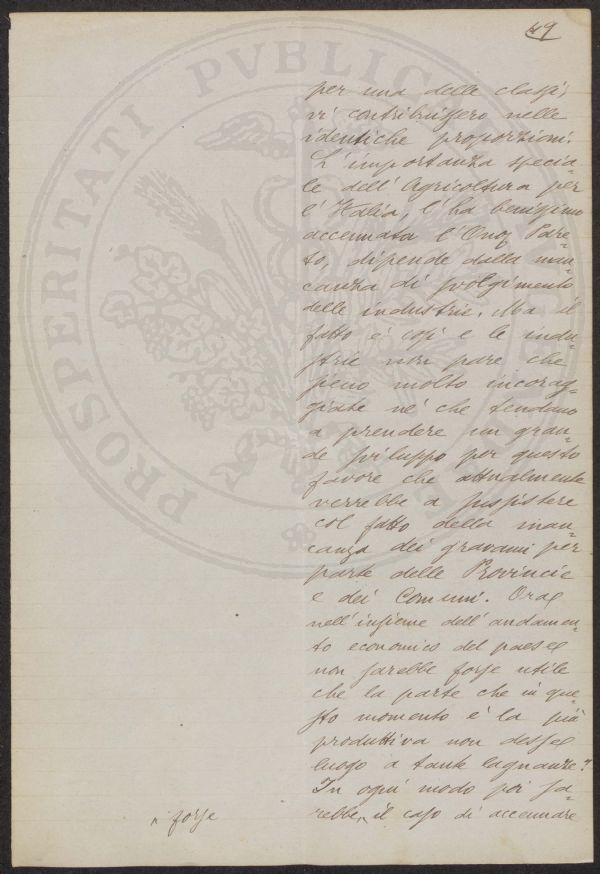 49
per una delle classi
vi contribuissero nelle
identiche proporzioni.
L'importanza specia-
le dell'Agricoltura per
l'Italia, l'ha benissimo
accennata l'On. Pare-
to, dipende dalla man-
canza di svolgimento
delle industrie. Ma il
fatto è così e le indu-
strie non pare che
sieno molto incorag-
giate nè che tendano
a prendere un gran-
de sviluppo per questo
favore che attualmente
verrebbe a sussistere
col fatto della man-
canza dei gravami per
parte delle Provincie
e dei Comuni. Ora
nell'insieme dell'andamen-
to economico del paese
non sarebbe forse utile
che la parte che in que-
sto momento è la più
produttiva non desse
luogo a tante lagnanze?
In ogni modo poi sa-
rebbe, il caso di accennare
forse
PROSPERITATI PVBLICAE